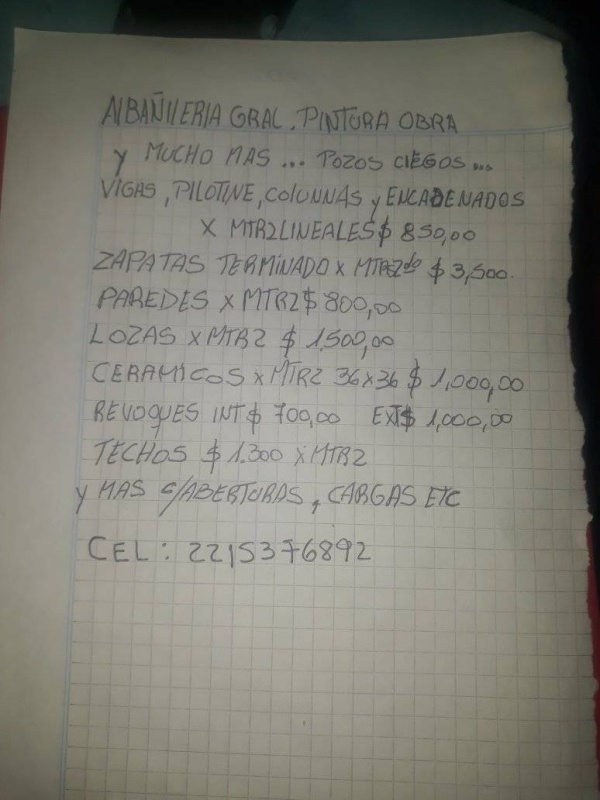 ALBAÑILERIA GRAL. PINTURA OBRA
y MUCHO MAS ... POZOS CIEGOS...
VIGAS, PILOTINE, COLUNNAS y ENCADENADOS
X MTR2LINEALES $ 850,00
ZAPATAS TERMINADO X $ 3,500.
PAREDES X MTR2 $ 800,00
LOZAS X MTR2 $ 1.500,00
CERAMICOS X MTR2 36x36 $ 1,000,00
REVOQUES INT $ 700,00 EXT $ 1,000,00
TECHOS $ 1.300 X MTR2
y MAS C/ABERTURAS, CARGAS ETC
CEL: 2215376892